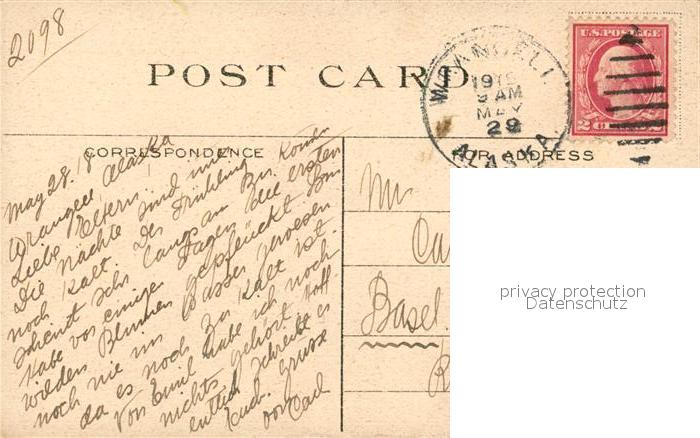 2098
POST CARD
WRANGELL
1918
9 AM
MAY
29
ALASKA
U.S. POSTAGE
2 CENTS 2
CORRESPONDENCE
FOR ADDRESS
May 28. 18
Wrangell, Alaska
Liebe Eltern!
Die Nächte sind
noch kalt. Der Frühling
scheint sehr langsam zu kommen
Habe vor einigen Tagen die ersten
wilden Blumen gepflückt. Bin
noch nie im Wasser gewesen
da es noch zu kalt ist.
Von Emil habe ich noch
nichts gehört, hoff-
entlich schreibt er
bald. Grüsse
von Carl
Mr.
Basel.
privacy protection
Datenschutz